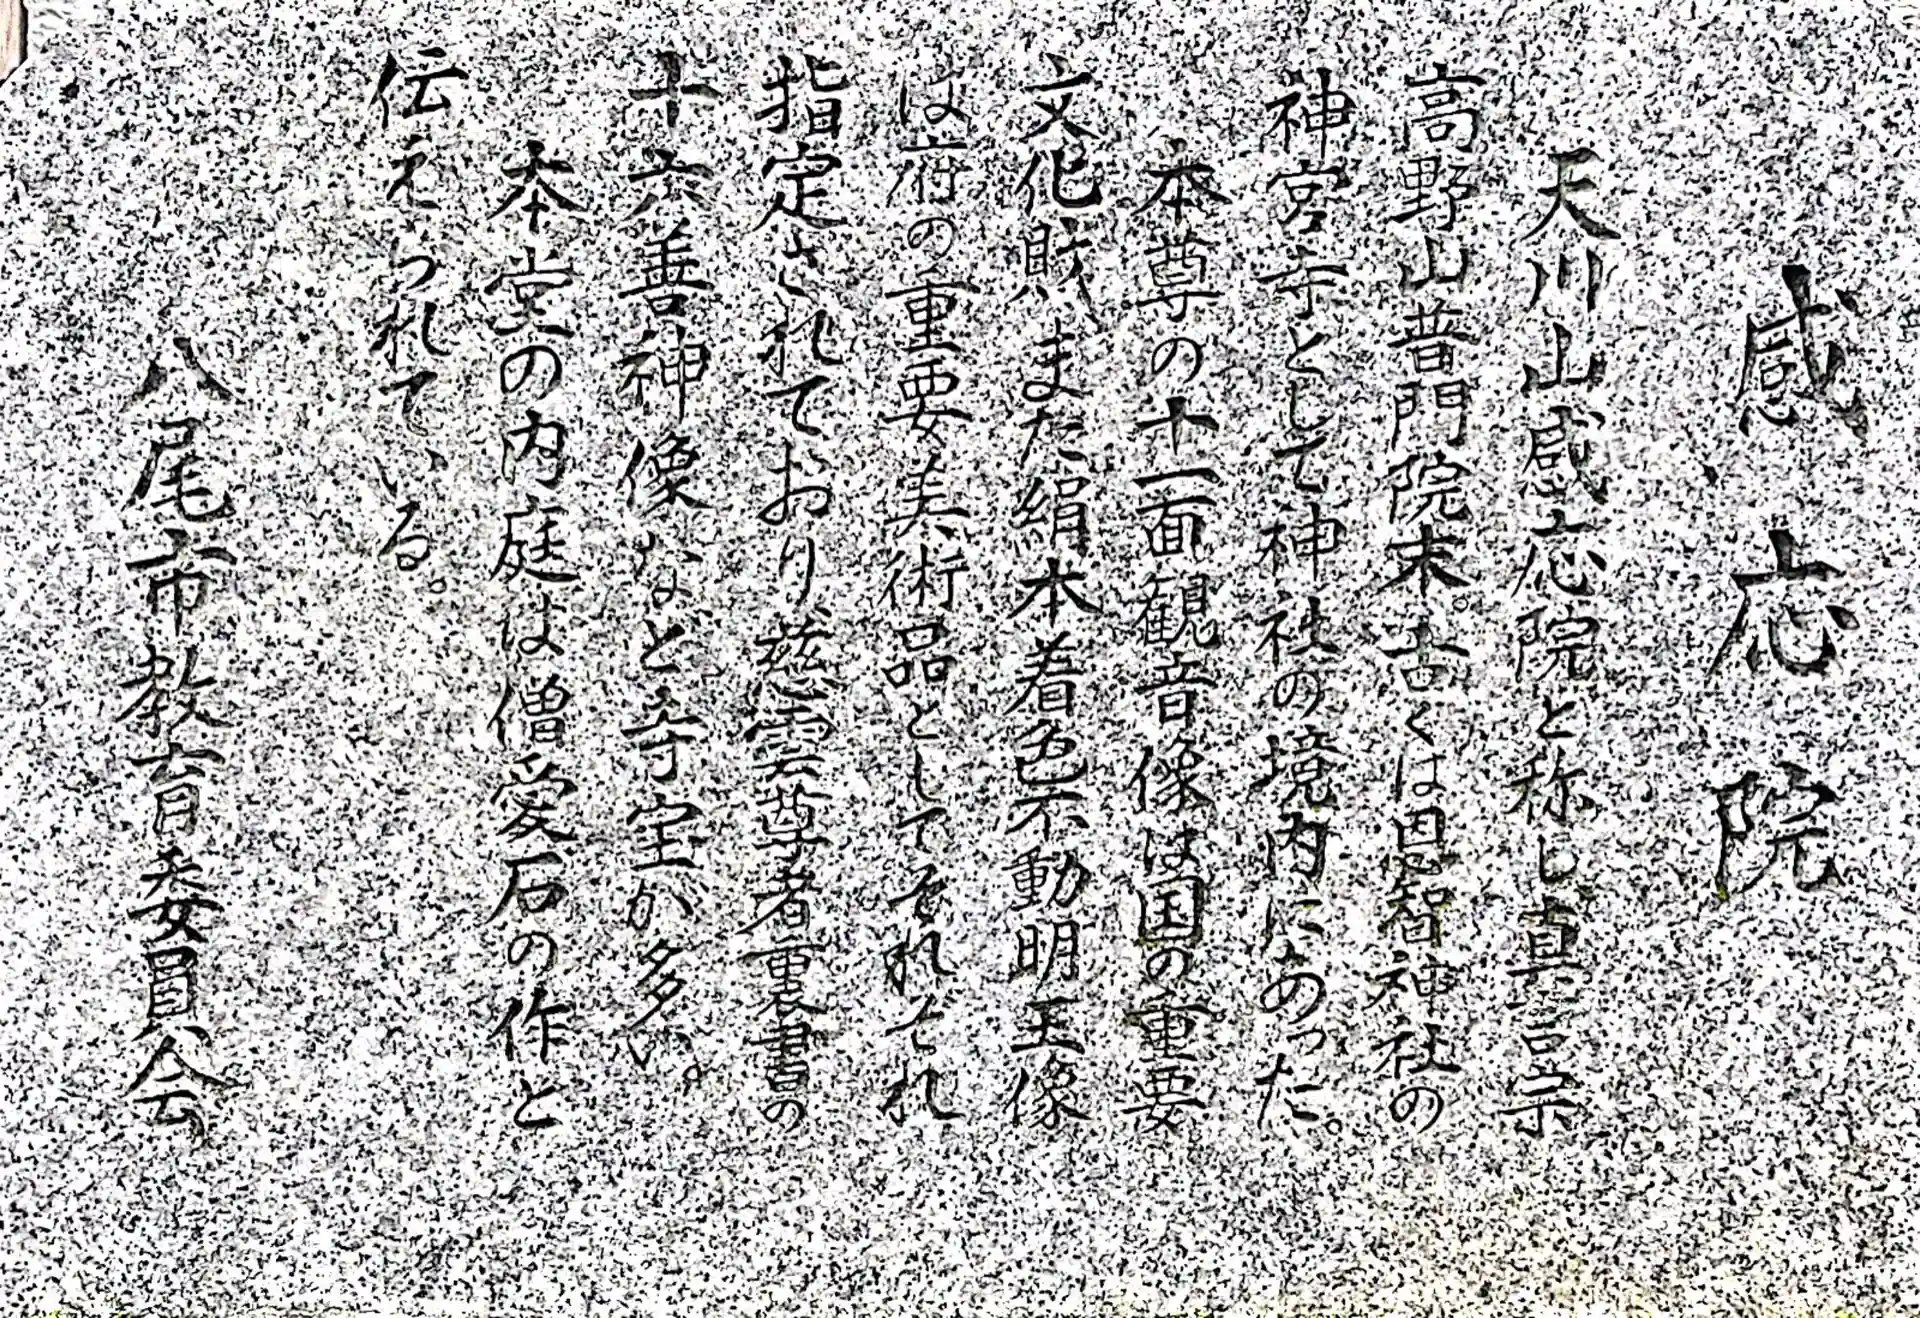 感応院
天川山感応院と称し真言宗
高野山普門院末。古くは恩智神社の
神宮寺として神社の境内にあった。
本尊の十一面観音像は国の重要
文化財、また絹本着色不動明王像
は府の重要美術品としてそれぞれ
指定されており慈雲尊者裏書の
十六善神像など寺宝が多い。
本堂の内庭は僧愛石の作と
伝えられている。
八尾市教育委員会